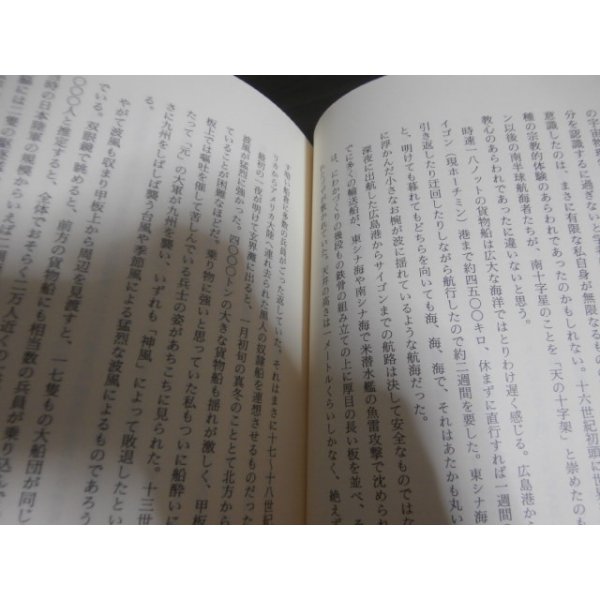 の宇宙物
分を認識するに過ぎないと
意識したのは、まさに有限な私自身が無限なるもの
種の宗教的体験のあらわれであったのかもしれない。十六世紀初頭に世界
ン以後の南半球航海者たちが、南十字星のことを「天の十字架」と崇めたのも
教心のあらわれであったに違いないと思う。
時速一八ノットの貨物船は広大な海洋ではとりわけ遅く感じる。広島港か
イゴン（現ホーチミン）港まで約四五〇〇キロ、休まずに直行すれば一週間
引き返したり迂回したりしながら航行したので約二週間を要した。東シナ海
と、明けても暮れてもどちらを向いても海、海、海で、それはあたかも丸い
に浮かんだ小さなお椀が波に揺れているような航海だった。
深夜に出航した広島港からサイゴンまでの航路は決して安全なものではな
でに多くの輸送船が、東シナ海や南シナ海で米潜水艦の魚雷攻撃で沈められ
は、にわかづくりの幾段もの鉄骨の組み立ての上に厚目の長い板を並べ、そ
天井の高さは一メートルくらいしかなく、絶えず
す暗い船倉に多数の兵員がごった返していた。それはまさに十七〜十八世紀
からアメリカ大陸へ連れ去られた黒人の奴隷船を連想させるものだった
最初の一夜が明けて玄界灘に出ると、一月初旬の真冬のこととて北方から
波風が猛烈に強かった。四〇〇〇トンの大きな貨物船も揺れが激しく、甲板
ていることが困難なほどだ。乗り物に強いと思っていた私もついに船酔いに
板上では嘔吐を催して苦しんでいる兵士の姿があちこちに見られた。十三世
たって「元」の大軍が九州を襲い、いずれも「神風」によって敗退したとい
さに九州をしばしば襲う台風や季節風による猛烈な波風によるものであろう
る。
やがて波風も収まり甲板上から周辺を見渡すと、一七隻もの大船団が同じ
でいる。双眼鏡で眺めると、前方の貨物船にも相当数の兵員が乗り込んで
〇〇〇人と推定すると、全体でおそらく二万人近くの
時の日本陸軍の規模からいえば二個
には二隻の駆逐